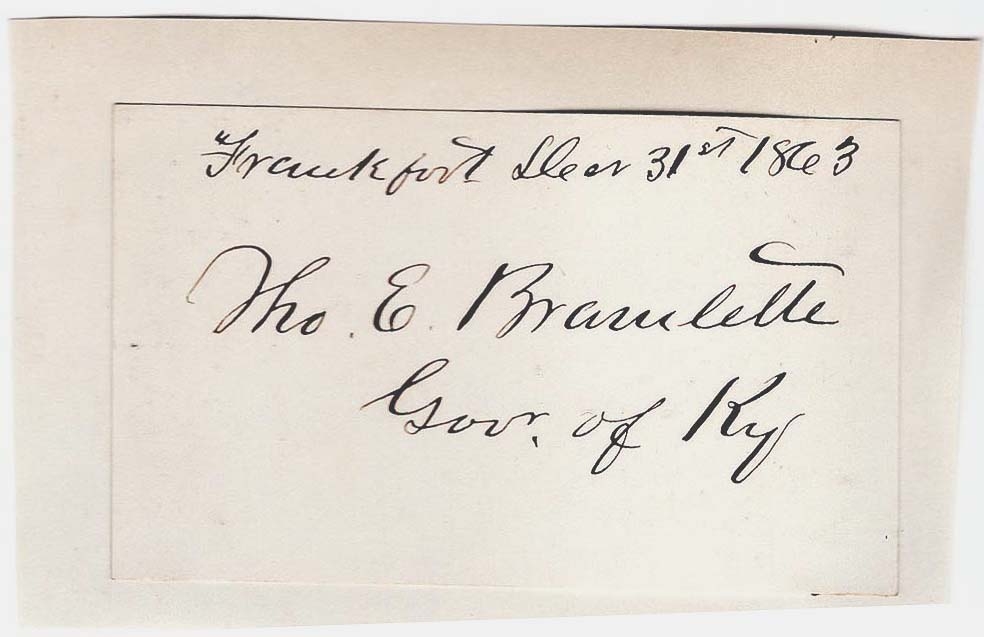 Frankfort Decr 31st 1863
Tho. E. Bramlette
Govr. of Ky